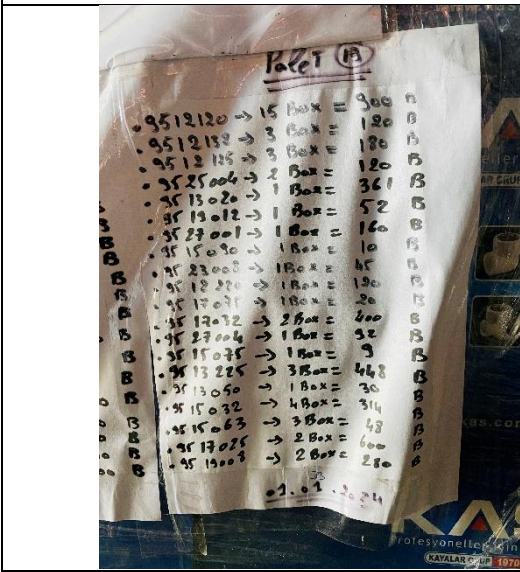 Palet 13
• 9512120 → 15 Box = 900 B
• 9512132 → 3 Box = 120 B
• 9512125 → 3 Box = 180 B
• 9525004 → 2 Box = 120 B
• 9513020 → 1 Box = 361 B
• 9519012 → 1 Box = 52 B
• 9527001 → 1 Box = 160 B
• 9515090 → 1 Box = 10 B
• 9523008 → 1 Box = 45 B
• 9512220 → 1 Box = 190 B
• 9517075 → 1 Box = 20 B
• 9517032 → 2 Box = 400 B
• 9527004 → 1 Box = 92 B
• 9515075 → 1 Box = 9 B
• 9513225 → 3 Box = 448 B
• 9513050 → 1 Box = 30 B
• 9515032 → 4 Box = 314 B
• 9515063 → 3 Box = 48 B
• 9517025 → 2 Box = 600 B
• 9519008 → 2 Box = 280 B
KAYALAR GRUP 1970